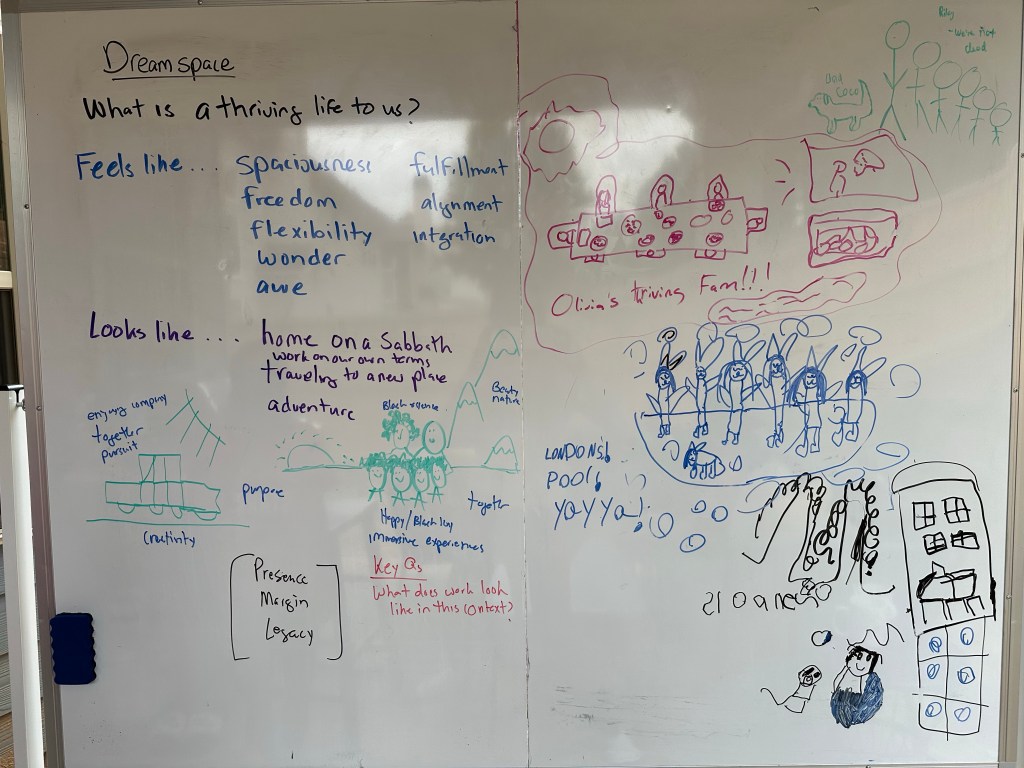 Dreamspace
What is a thriving life to us?
Feels like... spaciousness fulfillment
freedom alignment
flexibility intgration
wonder
awe
Looks like... home on a Sabbath
work on our own terms
traveling to a new place
adventure
enjoying company
together
pursuit
purpose
Crutivity
Black radiance
Beauty
nature
together
Happy/Black Joy
immersive experiences
Presence
Margin
Legacy
Key Qs
What does work look
like in this context?
Riley
- We're not
dead
COCO
Olivia's triving Fam!!!
LONDONS!
POOl!
YAYYa!